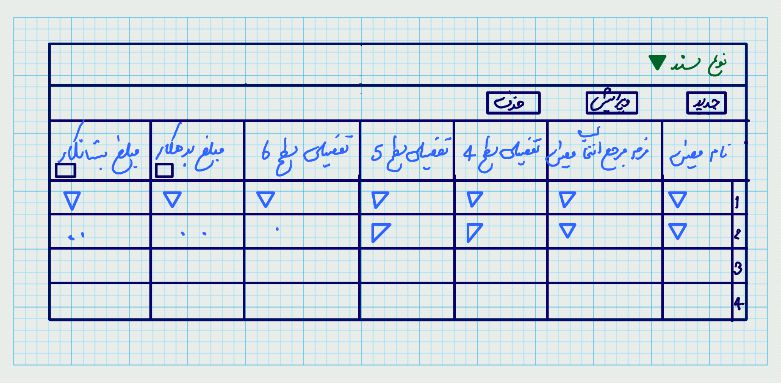 نوع سند
جدید ویرایش حذف
نام معین فرم مرجع انتخاب معین تفضیلی سطح 4 تفضیلی سطح 5 تفضیلی سطح 6 مبلغ بدهکار مبلغ بستانکار
1
2
3
4